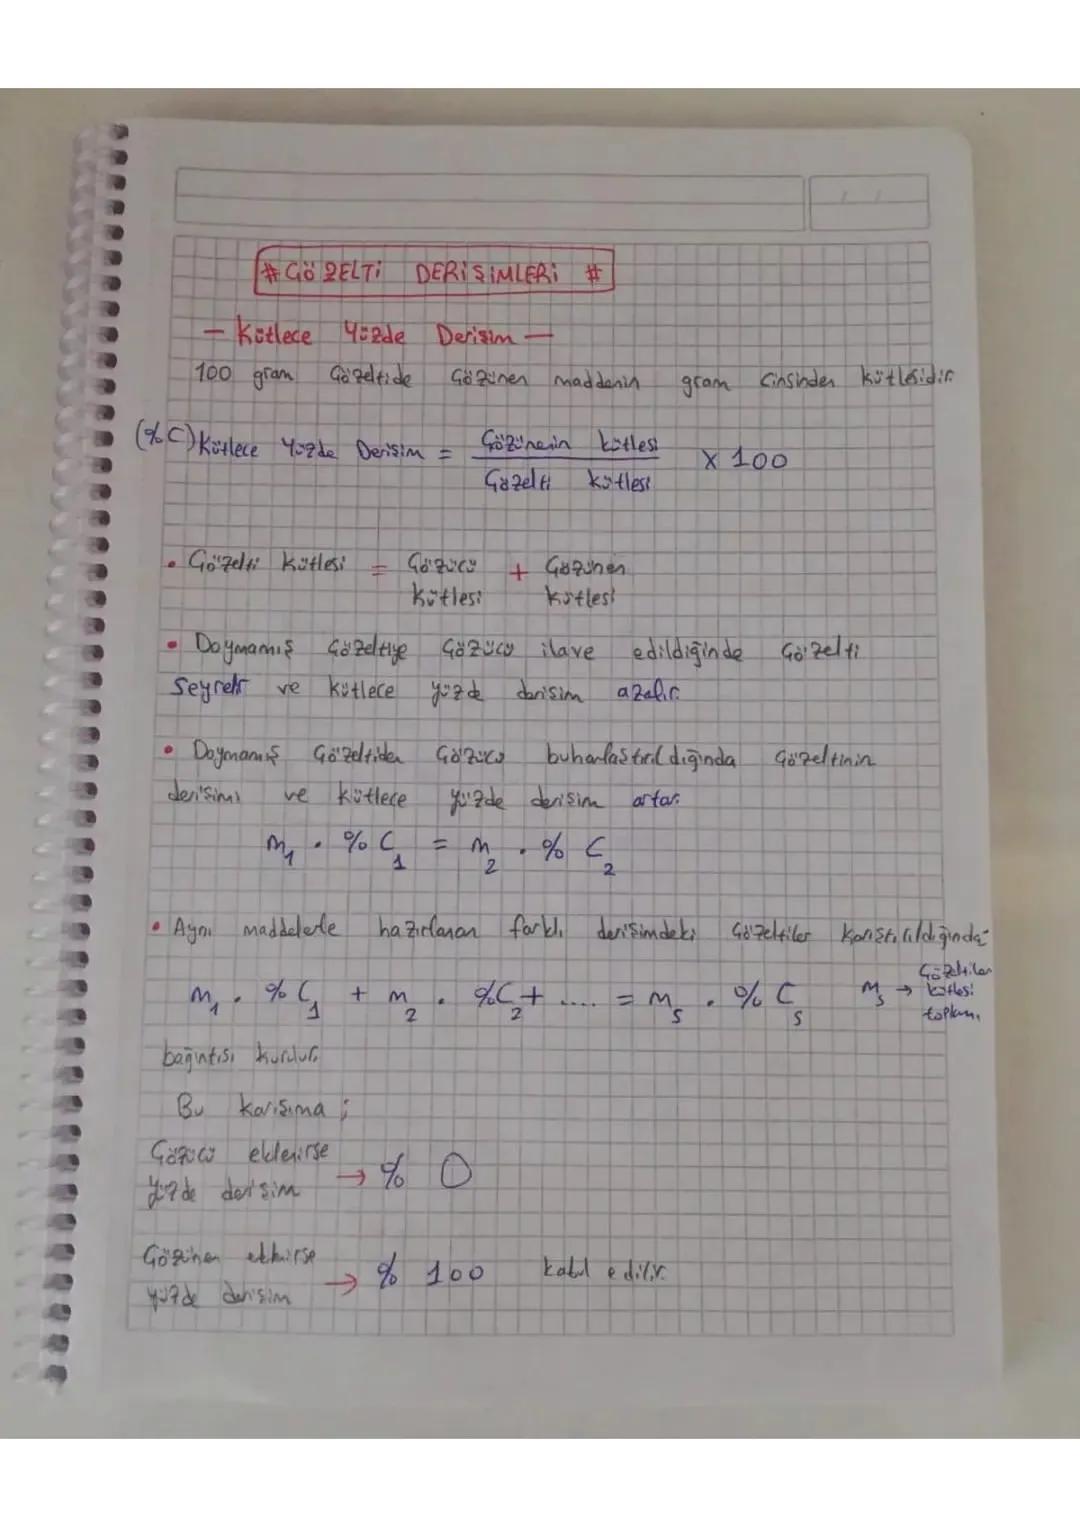 # ÇÖZELTİ DERİŞİMLERİ #
- Kütlece Yüzde Derişim -
100 gram Çözeltide Çözünen maddenin gram cinsinden kütlesidir.
(%C) Kütlece Yüzde Derişim = Çözünenin kütlesi / Çözelti kütlesi x 100
• Çözelti Kütlesi = Çözücü + Çözünen
Kütlesi kütlesi
• Doymamış Çözeltiye Çözücü ilave edildiğinde Çözelti
Seyrelir ve kütlece yüzde derişim azalır.
• Doymamış Çözeltiden Çözücü buharlaştırıldığında Çözeltinin
derişimi ve kütlece yüzde derişim artar.
m₁ . % C₁ = m₂ . % C₂
• Aynı maddelerle hazırlanan farklı derişimdeki Çözeltiler Karıştırıldığında
m₁ . % C₁ + m₂ . % C₂ + .... = mₛ . % Cₛ mₛ → Çözeltiler
kütlesi
toplamı
bağıntısı kurulur.
Bu karışıma ;
Çözücü eklenirse
yüzde derişim → % 0
Çözünen eklenirse
yüzde derişim → % 100 kabul edilir.